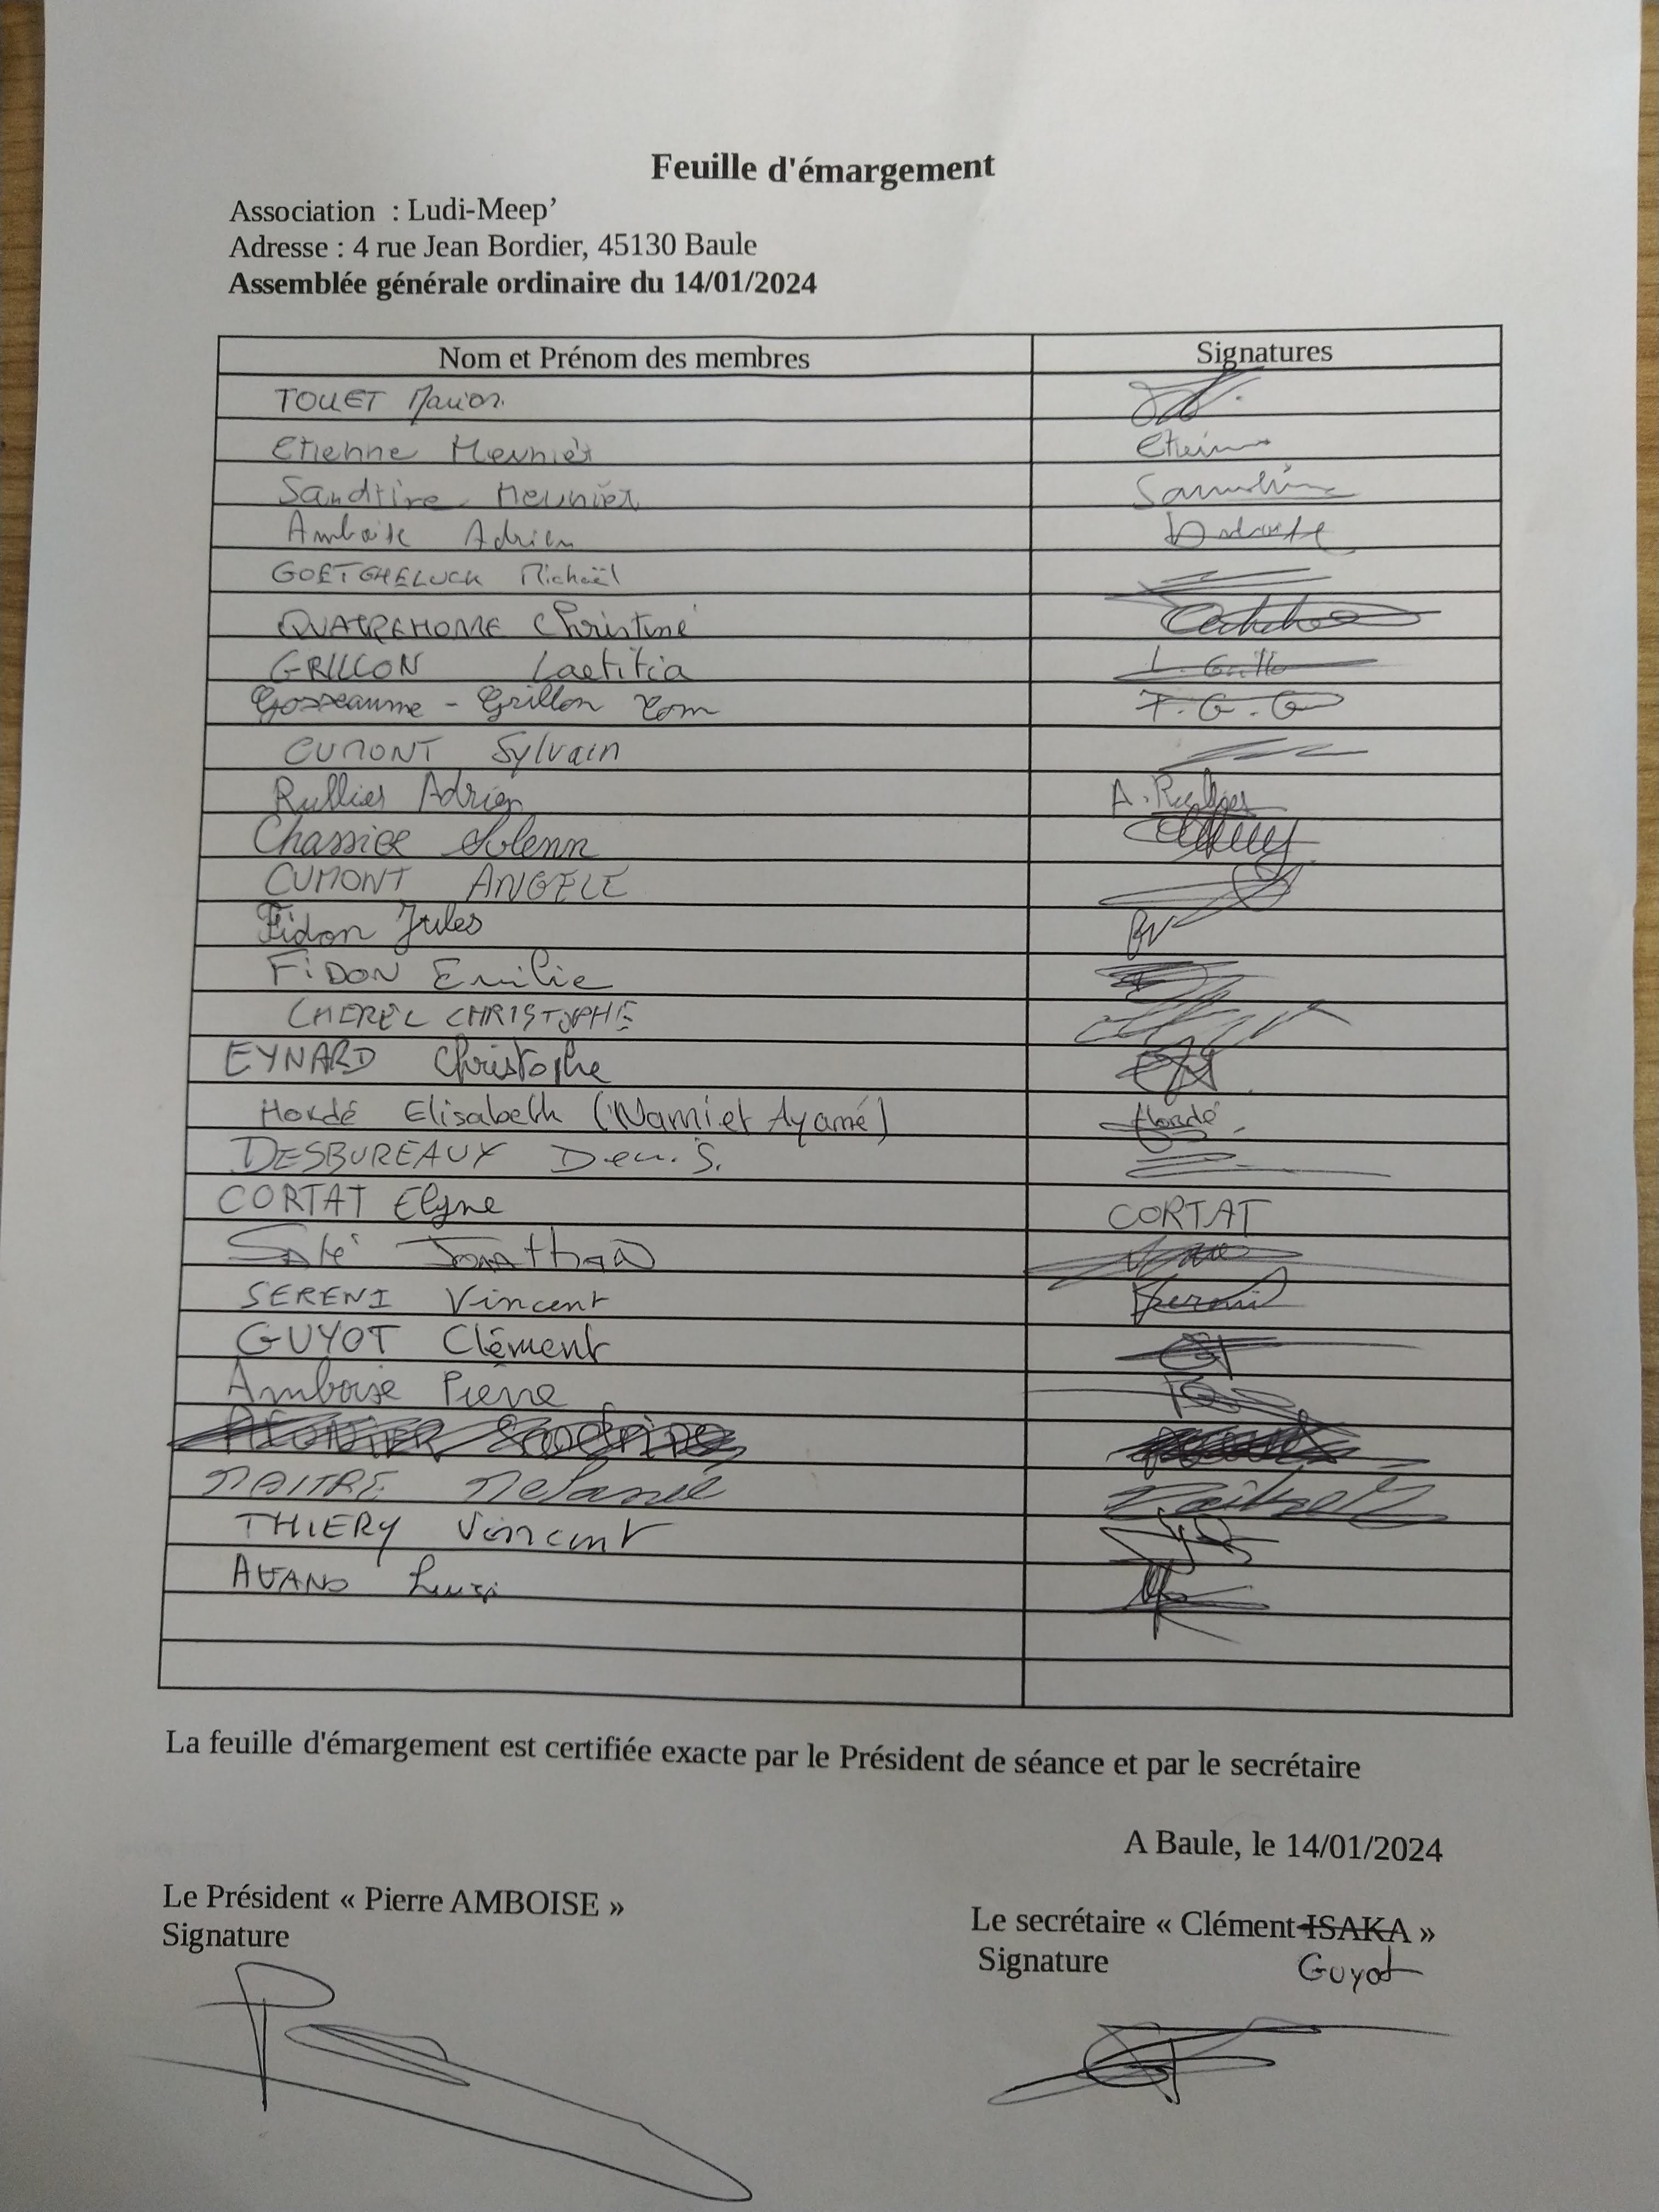 Feuille d'émargement
Association : Ludi-Meep’
Adresse : 4 rue Jean Bordier, 45130 Baule
Assemblée générale ordinaire du 14/01/2024
Nom et Prénom des membres Signatures
TOUET Marion
Etienne Meunier
Sandrine Meunier
Amboise Adrien
GOETGHELUCK Michaël
QUATREHOMME Christine
GRILLON Laetitia L. Grillo
Gosseaume - Grillon Tom T. G. G
CUMONT Sylvain
Rullier Adrien A. Rullier
Chassice Solenn
CUMONT ANGELE
Fidon Jules
FiDON Emilie
CHEREL CHRISTOPHE
EYNARD Christophe
Hordé Elisabeth (Nami et Ayamé) Hordé
DESBUREAUX Denis.
CORTAT Elyne CORTAT
Jonathan
SERENI Vincent
GUYOT Clément
Amboise Pierre
MEUNIER Sandrine
MAITRE Mélanie
THIERY Vincent
Luigi
La feuille d'émargement est certifiée exacte par le Président de séance et par le secrétaire
A Baule, le 14/01/2024
Le Président « Pierre AMBOISE »
Signature
Le secrétaire « Clément ISAKA »
Signature Guyot